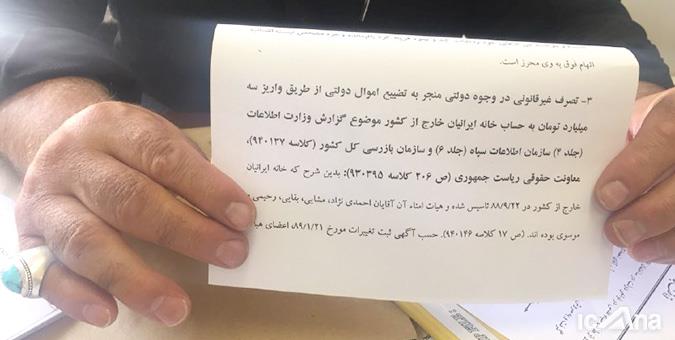 اتهام فوق به وی محرز است.
۳- تصرف غیرقانونی در وجوه دولتی منجر به تضییع اموال دولتی از طریق واریز سه
میلیارد تومان به حساب خانه ایرانیان خارج از کشور موضوع گزارش وزارت اطلاعات
(جلد ۴) سازمان اطلاعات سپاه (جلد ۶) و سازمان بازرسی کل کشور (کلاسه ۹۴۰۱۳۷)،
معاونت حقوقی ریاست جمهوری (ص ۲۰۶ کلاسه ۹۳۰۳۹۵): بدین شرح که خانه ایرانیان
خارج از کشور در ۸۸/۹/۲۲ تاسیس شده و هیات امناء آن آقایان احمدی نژاد، مشایی، بقایی، رحیمی و
موسوی بوده اند. (ص ۱۷ کلاسه ۹۴۰۱۴۶). حسب آگهی ثبت تغییرات مورخ ۸۹/۱/۲۱، اعضای
icana